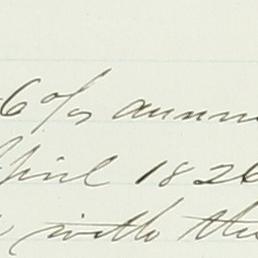 6 o/o annu
April 182
with the